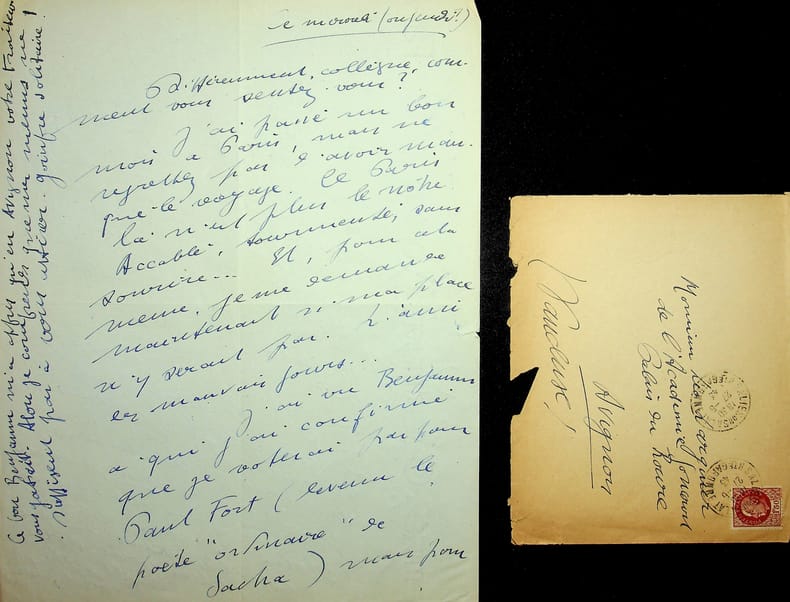 ce mercredi (ou jeudi!)
Différemment, collègue, com-
ment vous sentez vous?
J'ai passé un bon
mois à Paris, mais ne
regrettez pas d'avoir man-
qué le voyage. Ce Paris
là n'est plus le nôtre
Accablé, tourmenté, sans
sourire... Et, pour cela
même, je me demande
maintenant si ma place
n'y serait pas. L'ami
des mauvais jours...
J'ai vu Benjamin
à qui j'ai confirmé
que je voterai pas pour
Paul Fort (devenu le
poète "ordinaire" de
Sacha) mais pour
Ce bon Benjamin m'a appris qu'en Avignon votre traiteur
vous Alors je comprends que mes menus ne
suffisent pas à vous attirer. goinfre solitaire!
Monsieur Léo Larguier
de l'Académie Goncourt
Palais du Roure
Avignon
(Vaucluse)